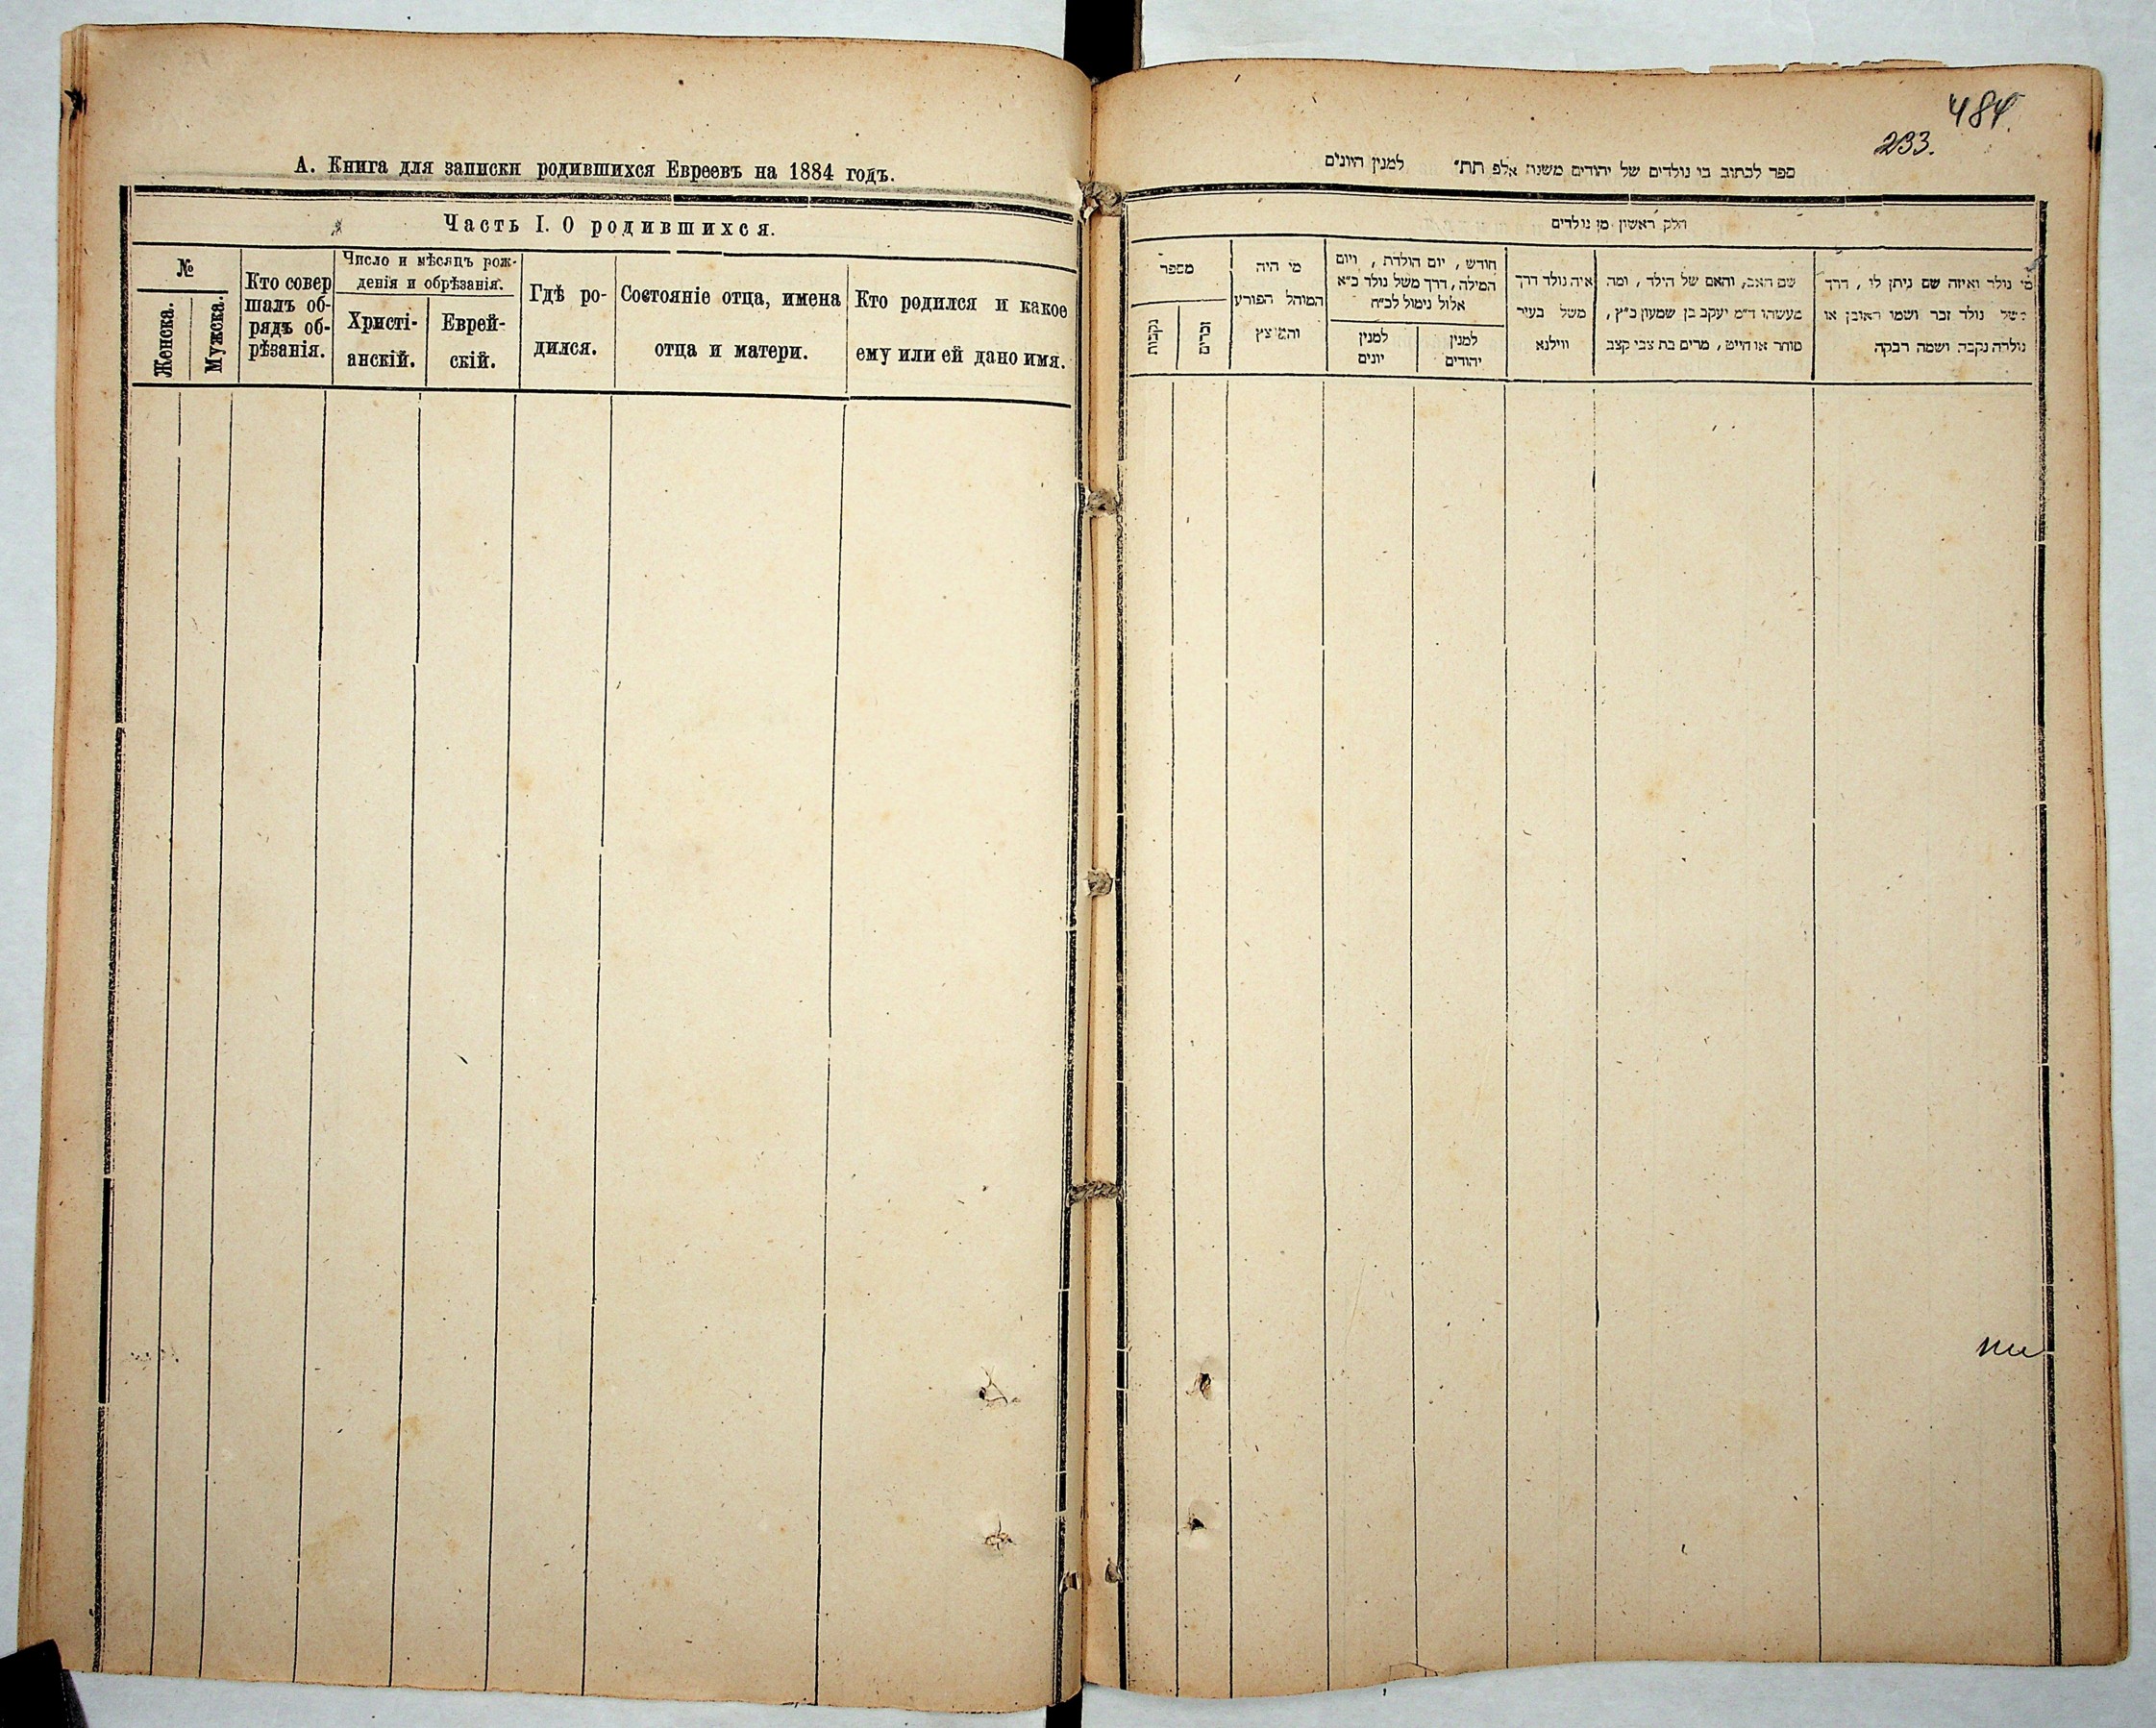 А. Книга для записки родившихся Евреевъ на 1884 годъ.
Часть I. О родившихся.
№
Женска.
Мужска.
Кто совер
шалъ об-
рядъ об-
рѣзанія.
Число и мѣсяцъ рож-
денія и обрѣзанія.
Христі-
анскій.
Еврей-
скій.
Гдѣ ро-
дился.
Состояніе отца, имена
отца и матери.
Кто родился и какое
ему или ей дано имя.
484.
233.
ספר לכתוב בו נולדים של יהודים משנת אלפ תת״ למנין היונים
חלק ראשון מן נולדים
מי נולד ואיזה שם ניתן לו, דרך
משל נולד זכר ושמו ראובן או
נולדה נקבה ושמה רבקה
שם האב, והאם של הילד, ומה
מעשהו ד״מ יעקב בן שמעון כ״ץ,
סוחר או חייט, מרים בת צבי קצב
איה נולד דרך
משל בעיר
ווילנא
חודש, יום הולדת, ויום
המילה, דרך משל נולד כ״א
אלול נימול לכ״ח
למנין
יהודים
למנין
יונים
מי היה
המוהל הפורע
והמוצץ
מספר
זכרים
נקבות